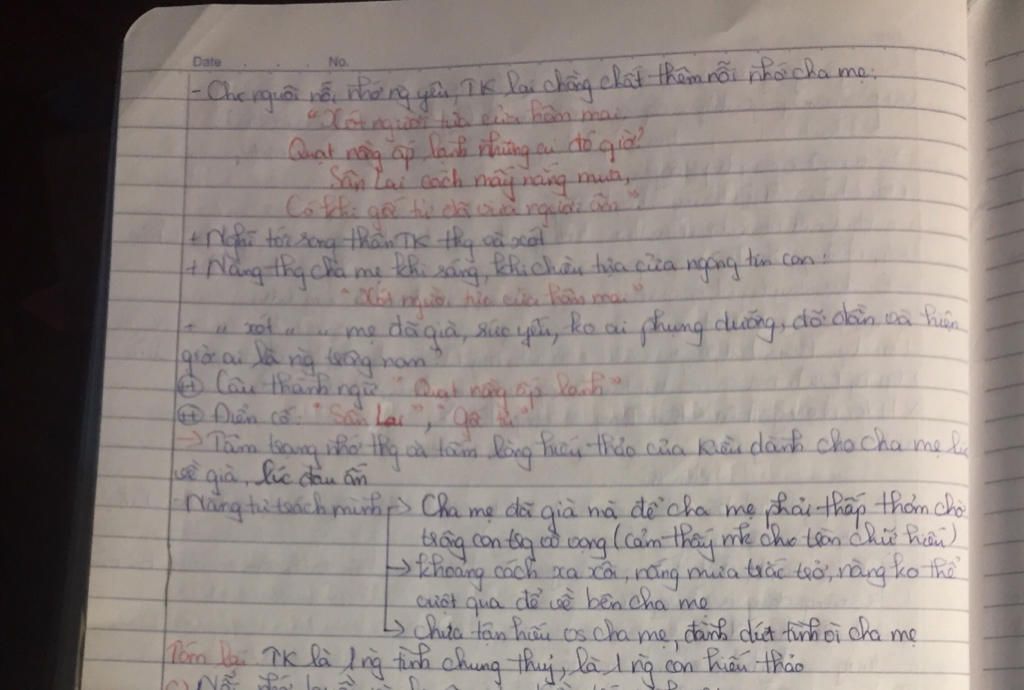 Date No.
- Chưa nguôi nỗi nhớ ng yêu, TK lại chồng chất thêm nỗi nhớ cha mẹ:
"Xót người tựa cửa hôm mai,
Quạt nồng ấp lạnh những ai đó giờ?
Sân Lai cách mấy nắng mưa,
Có khi gốc tử đã vừa người ôm"
+ Nghĩ tới song thân TK thg và xót
+ Nàng thg cha mẹ khi sáng, khi chiều tựa cửa ngóng tin con:
"Xót người tựa cửa hôm mai"
+ " xót " " mẹ đã già, sức yếu, ko ai phụng dưỡng, đỡ đần và hiện
giờ ai là ng trông nom"
⊕ Câu thành ngữ "Quạt nồng ấp lạnh"
⊕ Điển cố: "Sân Lai", "gốc tử"
→ Tâm trạng nhớ thg và tấm lòng hiếu thảo của Kiều dành cho cha mẹ lúc
về già, lúc đau ốm
Nàng tự trách mình → Cha mẹ đã già mà để cha mẹ phải thấp thỏm chờ
trông con tng vô vọng (cảm thấy mk chưa tròn chữ hiếu)
→ khoảng cách xa xôi, nắng mưa trắc trở, nàng ko thể
vượt qua để về bên cha mẹ
→ chưa tận hiếu vs cha mẹ, đành dứt tình vì cha mẹ
Tóm lại TK là 1 ng tình chung thuỷ, là 1 ng con hiếu thảo
c) Nỗi